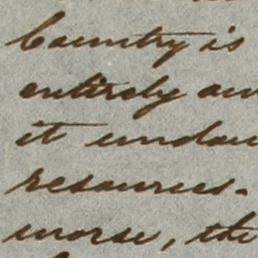 Country is
entirely
it
resources.
worse, the